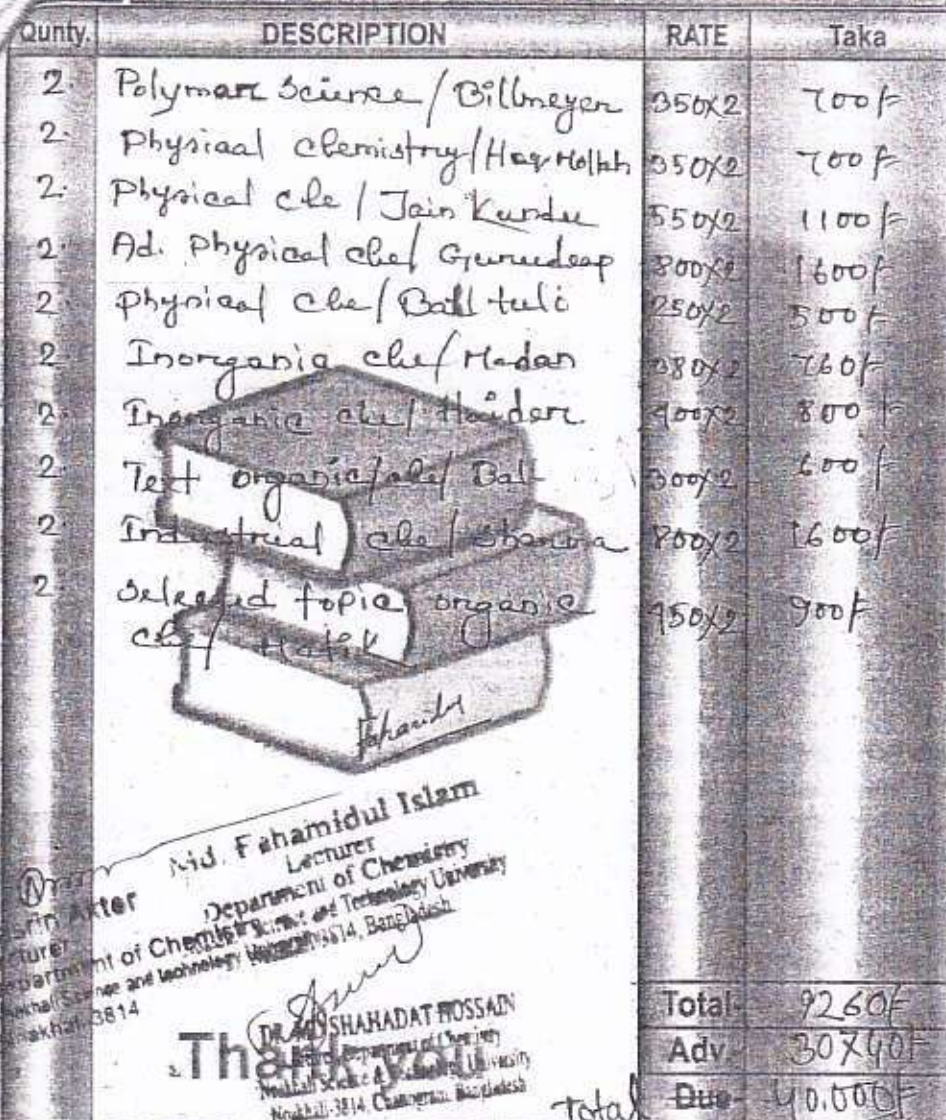 Qunty. DESCRIPTION RATE Taka
2. Polymar Science / Billmeyer 350x2 700/-
2. Physical chemistry/Haq Mollah 350x2 700/-
2. Physical che / Jain Kundu 550x2 1100/-
2. Ad. Physical che/ Gurudeep 800x2 1600/-
2. Physical che/ Ball tuli 250x2 500/-
2. Inorganic che/ Madan 380x2 760/-
2. Inorganic che/ Haider 400x2 800/-
2. Text organic/che/ Bal 300x2 600/-
2. Industrial che/ Sharma 800x2 1600/-
2. Selected topic organic 450x2 900/-
che/ Malik
Md. Fahamidul Islam
Lecturer
Department of Chemistry
Science and Technology University
3814, Bangladesh
Akter
Department of Chemistry
Science and technology University
3814
DR. MD. SHAHADAT HOSSAIN
Department of Chemistry
Noakhali Science & Technology University
Noakhali-3814, Chattogram, Bangladesh
Thank you
Total- 9260/-
Adv.- 30740/-
Total Due- 40,000/-